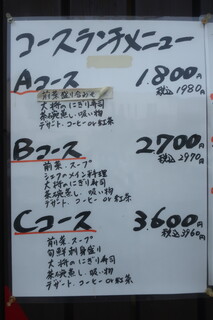 コースランチメニュー
Aコース 1.800円
税込1980円
前菜盛り合わせ
大将のにぎり寿司
茶碗蒸し.吸い物
デザート.コーヒーor紅茶
Bコース 2.700円
税込2970円
前菜.スープ
シェフのメイン料理
大将のにぎり寿司
茶碗蒸し.吸い物
デザート.コーヒーor紅茶
Cコース 3.600円
税込3960円
前菜.スープ
旬鮮刺身盛り
大将のにぎり寿司
茶碗蒸し.吸い物
デザート.コーヒーor紅茶